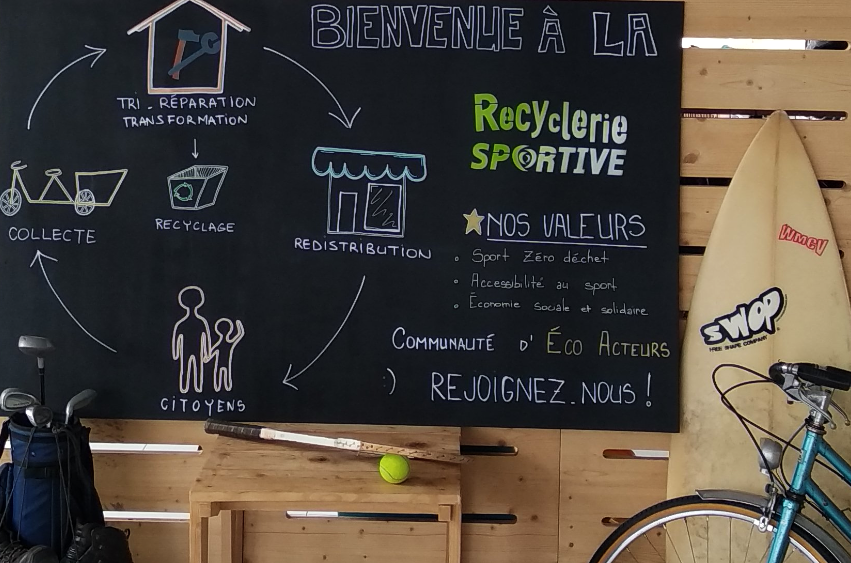 BIENVENUE À LA
TRI - RÉPARATION
TRANSFORMATION
Recyclerie
SPORTIVE
COLLECTE
RECYCLAGE
REDISTRIBUTION
NOS VALEURS
• Sport Zéro déchet
• Accessibilité au sport
• Économie sociale et solidaire
COMMUNAUTÉ D' ÉCO ACTEURS
:) REJOIGNEZ-NOUS !
CITOYENS
WMCV
SWOP
FREE SHAPE COMPANY